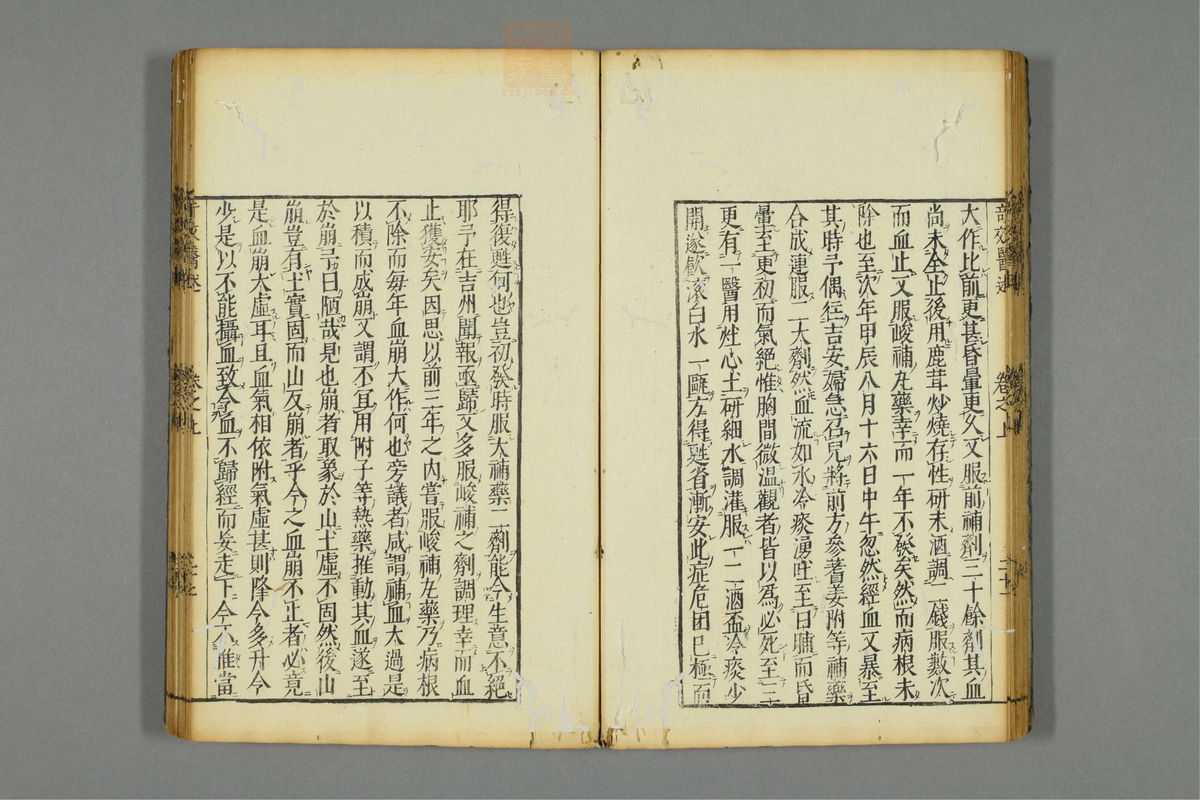 奇效醫述
卷之上
二十七
大作比前更甚昏暈更久又服前補劑三十餘劑其血
尚未全止後用鹿茸炒燒存性研末酒調一錢服數次
而血止又服峻補丸藥幸而一年不發矣然而病根未
除也至次年甲辰八月十六日中午忽然經血又暴至
其時予偶往吉安婦急召兒將前方參耆姜附等補藥
合成連服二大劑然血流如水冷痰湧吐至日晡而昏
暈至更初而氣絕惟胸間微溫觀者皆以爲必死至三
更有一醫用灶心土研細水調灌服一二酒盃冷痰少
開遂飲滾白水一甌方得甦省漸安此症危困已極而
得復甦何也豈初發時服大補藥二劑能令生意不絕
耶予在吉州聞報亟歸又多服峻補之劑調理幸而血
止獲安矣因思以前三年之內嘗服峻補丸藥乃病根
不除而每年血崩大作何也旁議者咸謂補血太過是
以積而成崩又謂不宜用附子等熱藥推動其血遂至
於崩予曰陋哉見也崩者取象於山土虛不固然後山
崩豈有土實固而山反崩者乎今之血崩不止者必竟
是血崩大虛耳且血氣相依附氣虛甚則降令多升令
少是以不能攝血致令血不歸經而妄走下今不惟當
奇效醫述
卷之上
二十七